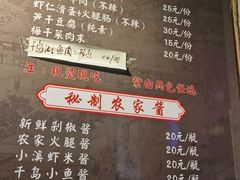 牛肉（不辣） 25元/份
虾仁滑蛋+火腿肠（不辣） 15元/份
笋干豆腐（纯素） 15元/份
梅干菜肉末 20元/份
注：现烫现吃
秘制农家酱
新鲜剁椒酱 20元/瓶
农家火腿酱 20元/瓶
小溪虾米酱 20元/瓶
千岛小鱼酱 20元/瓶